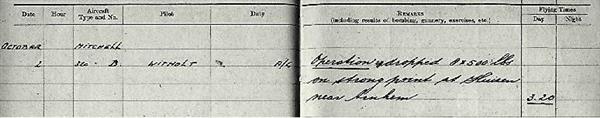 Date Hour Aircraft Type and No. Pilot Duty REMARKS (including results of bombing, gunnery, exercises, etc.) Flying Times Day Night
OCTOBER MITCHELL
2 B WITHOLT A/G Operation dropped 8 x 500 lbs
on strong point at Huisen
near Arnhem 3.20